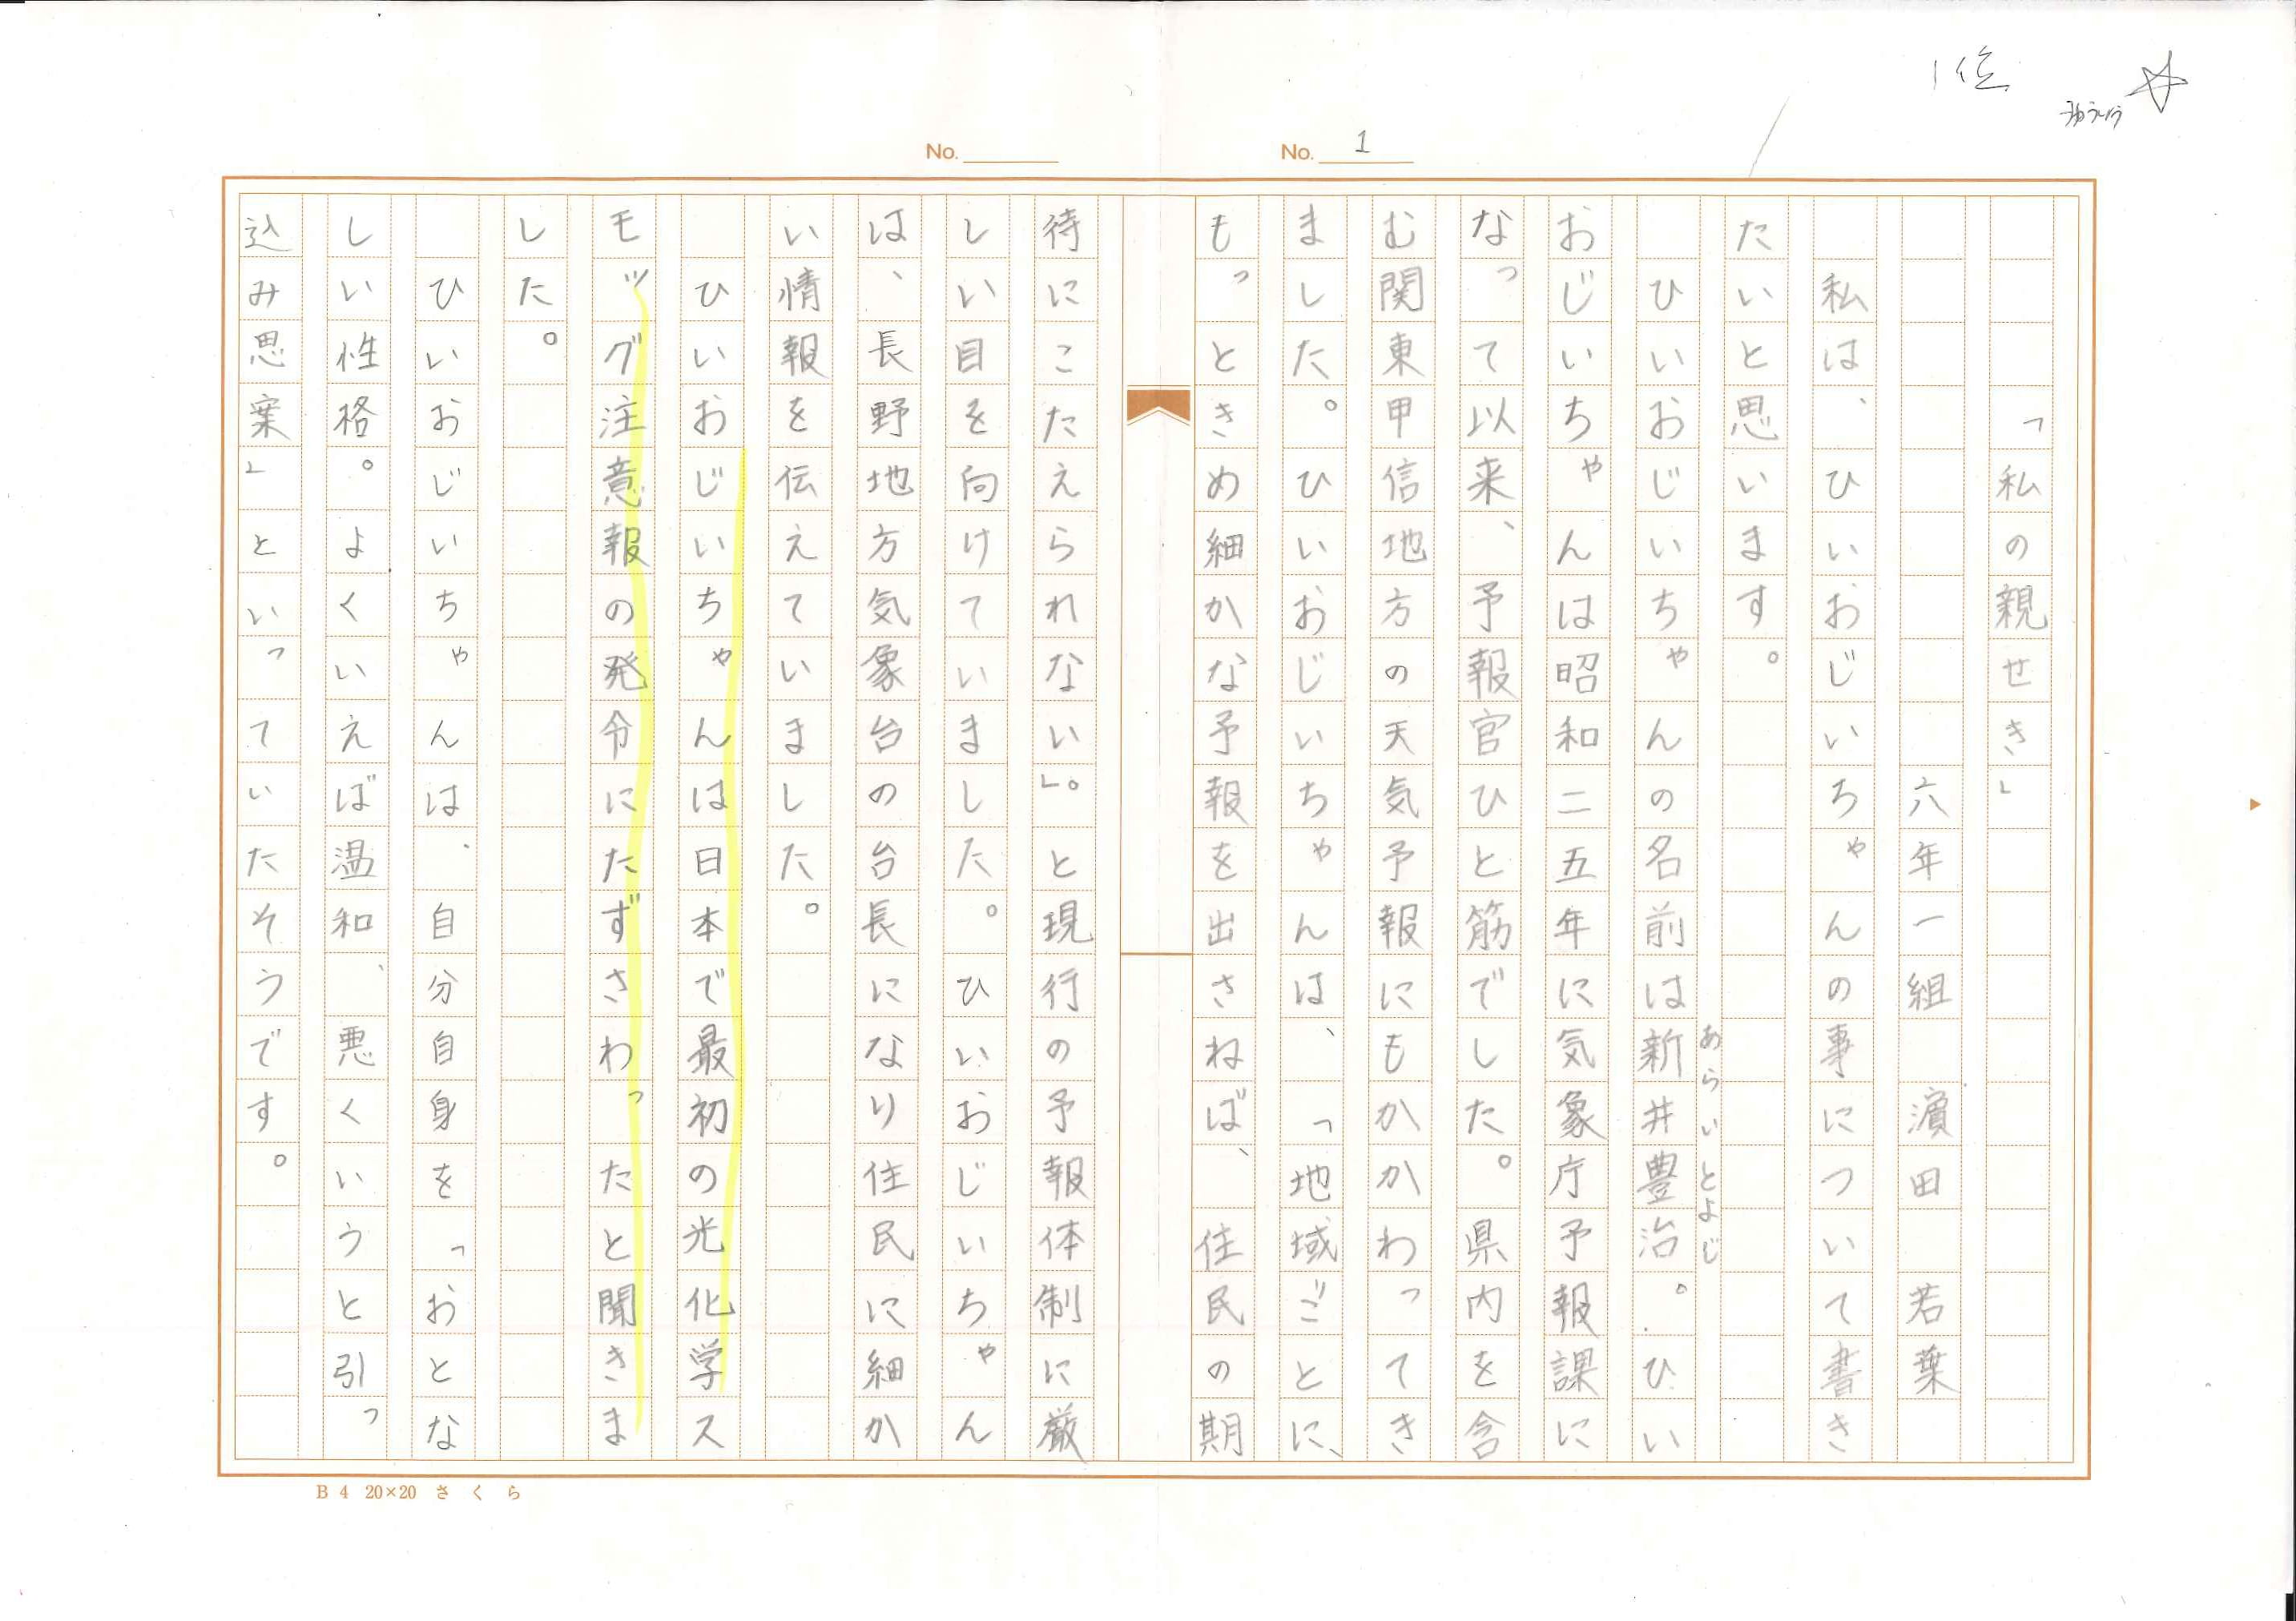 1位
No. 1
No.
「私の親せき」
六年一組 濵田 若葉
私は、ひいおじいちゃんの事について書き
たいと思います。
ひいおじいちゃんの名前は新井豊治。ひい
あらいとよじ
おじいちゃんは昭和二五年に気象庁予報課に
なって以来、予報官ひと筋でした。県内を含
む関東甲信地方の天気予報にもかかわってき
ました。ひいおじいちゃんは、「地域ごとに、
もっときめ細かな予報を出さねば、住民の期
待にこたえられない」。と現行の予報体制に厳
しい目を向けていました。ひいおじいちゃん
は、長野地方気象台の台長になり住民に細か
い情報を伝えていました。
ひいおじいちゃんは日本で最初の光化学ス
モッグ注意報の発令にたずさわったと聞きま
した。
ひいおじいちゃんは、自分自身を「おとな
しい性格。よくいえば温和、悪くいうと引っ
込み思案」といっていたそうです。
B4 20×20 さくら